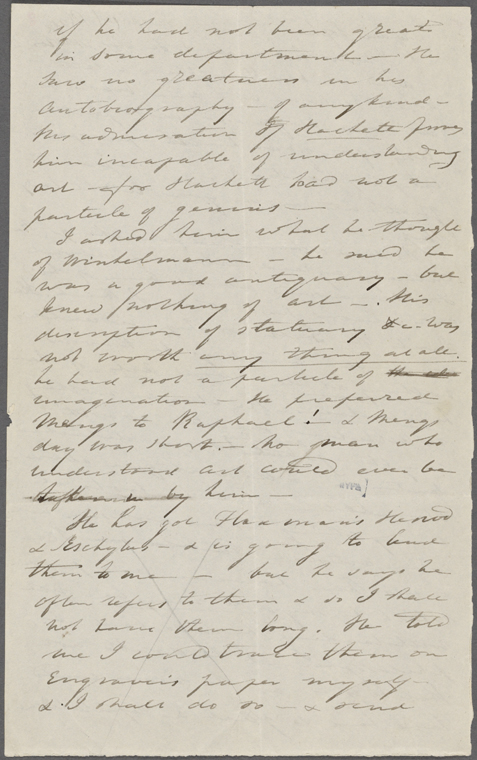 if he had not been great
in some department — He
sees no greatness in his
Autobiography — of any kind —
His admiration of Hackett proves
him incapable of understanding
art — for Hackett had not a
particle of genius —
I asked him what he thought
of Winkelmann — he said he
was a good antiquary — but
knew nothing of art —. His
description of statuary &c — was
not worth any thing at all.
he had not a particle of
imagination — He preferred
Mengs to Raphael! — & Mengs
day was short. — No man who
understood art could ever be
taken in by him —
He has got Flaxman's Hesiod
& Eschylus — & is going to lend
them to me — but he says he
often refers to them & so I shall
not have them long. He told
me I could trace them on
Engraver's paper myself
& I shall do so — & send